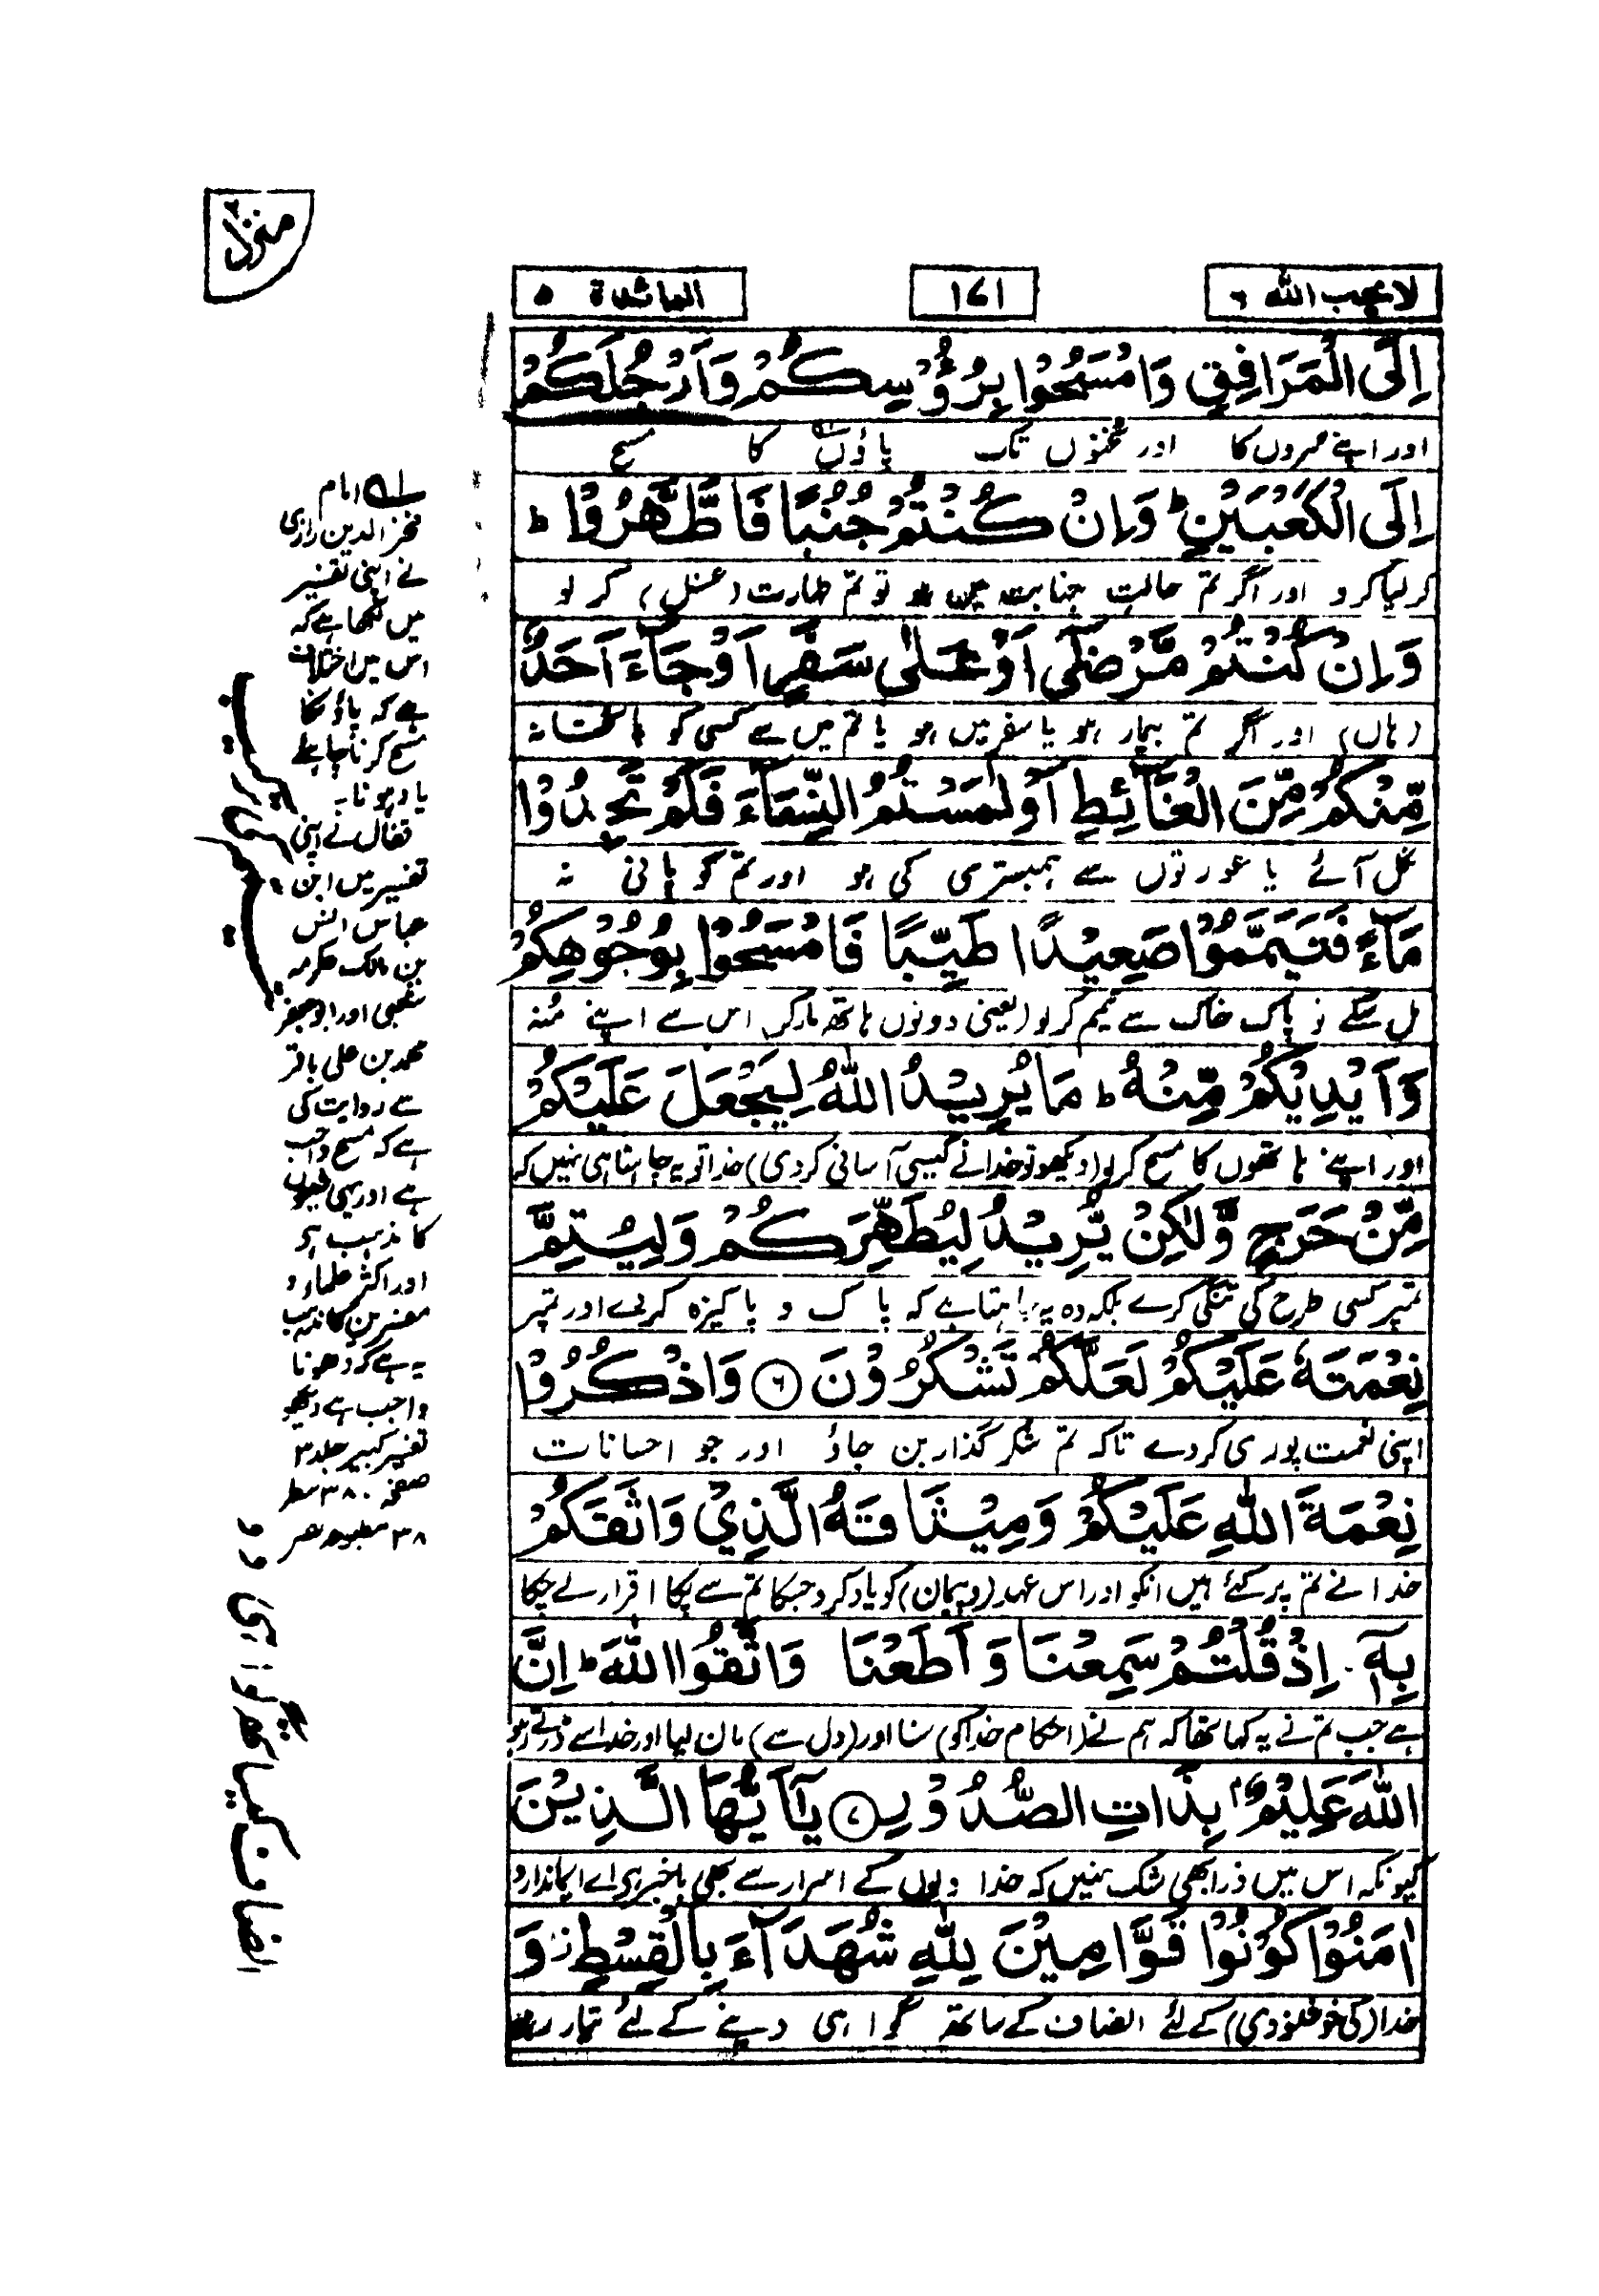 منزل ٢
لا یحب اللہ ٦
١٤١
المائدة ٥
اِلَى الْمَرَافِقِ وَامْسَحُوْا بِرُءُوْسِكُمْ وَاَرْجُلَكُمْ
اور اپنے سروں کا اور ٹخنوں تک پاؤں کا مسح
اِلَى الْكَعْبَيْنِ ؕ وَاِنْ كُنْتُمْ جُنُبًا فَاطَّهَّرُوْا ؕ
کر لیا کرو اور اگر تم حالتِ جنابت میں ہو تو تم طہارت (غسل) کر لو
وَاِنْ كُنْتُمْ مَّرْضٰٓى اَوْ عَلٰى سَفَرٍ اَوْ جَآءَ اَحَدٌ
(ہاں) اور اگر تم بیمار ہو یا سفر میں ہو یا تم میں سے کسی کو پائخانہ
مِّنْكُمْ مِّنَ الْغَآئِطِ اَوْ لٰمَسْتُمُ النِّسَآءَ فَلَمْ تَجِدُوْا
نکل آئے یا عورتوں سے ہمبستری کی ہو اور تم کو پانی نہ
مَآءً فَتَيَمَّمُوْا صَعِيْدًا طَيِّبًا فَامْسَحُوْا بِوُجُوْهِكُمْ
مل سکے تو پاک خاک سے تیمم کر لو (یعنی دونوں ہاتھ مار کر) اس سے اپنے منہ
وَاَيْدِيْكُمْ مِّنْهُ ؕ مَا يُرِيْدُ اللّٰهُ لِيَجْعَلَ عَلَيْكُمْ
اور اپنے ہاتھوں کا مسح کر لو (دیکھو تو خدا نے کیسی آسانی کر دی) خدا تو یہ چاہتا ہی نہیں کہ
مِّنْ حَرَجٍ وَّلٰكِنْ يُّرِيْدُ لِيُطَهِّرَكُمْ وَلِيُتِمَّ
تم پر کسی طرح کی تنگی کرے بلکہ وہ یہ چاہتا ہے کہ پاک و پاکیزہ کر دے اور تم پر
نِعْمَتَهٗ عَلَيْكُمْ لَعَلَّكُمْ تَشْكُرُوْنَ ﴿٦﴾ وَاذْكُرُوْا
اپنی نعمت پوری کر دے تاکہ تم شکر گذار بن جاؤ اور جو احسانات
نِعْمَةَ اللّٰهِ عَلَيْكُمْ وَمِيْثَاقَهُ الَّذِيْ وَاثَقَكُمْ
خدا نے تم پر کئے ہیں انکو اور اس عہد (و پیمان) کو یاد کرو جسکا تم سے پکا اقرار لے چکا
بِهٖٓ اِذْ قُلْتُمْ سَمِعْنَا وَاَطَعْنَا وَاتَّقُوا اللّٰهَ ؕ اِنَّ
ہے جب تم نے یہ کہا تھا کہ ہم نے (احکام خدا کو) سنا اور (دل سے) مان لیا اور خدا سے ڈرتے رہو
اللّٰهَ عَلِيْمٌۢ بِذَاتِ الصُّدُوْرِ ﴿٧﴾ يٰٓاَيُّهَا الَّذِيْنَ
کیونکہ اس میں ذرا بھی شک نہیں کہ خدا دلوں کے اسرار سے بھی باخبر ہے اے ایماندارو
اٰمَنُوْا كُوْنُوْا قَوَّامِيْنَ لِلّٰهِ شُهَدَآءَ بِالْقِسْطِ ز وَ
خدا (کی خوشنودی) کے لئے انصاف کے ساتھ گواہی دینے کے لئے تیار رہو
لے امام
فخر الدین رازی
نے اپنی تفسیر
میں لکھا ہے کہ
اس میں اختلاف
ہے کہ پاؤں کا
مسح کرنا چاہئے
یا دھونا۔
قفال نے اپنی
تفسیر میں ابن
عباس انس
بن مالک عکرمہ
شعبی اور ابو جعفر
محمد بن علی باقر
سے روایت کی
ہے کہ مسح واجب
ہے اور یہی شیعوں
کا مذہب ہے
اور اکثر علماء و
مفسرین کا مذہب
یہ ہے کہ دھونا
واجب ہے دیکھو
تفسیر کبیر جلد ٣
صفحہ ٣٨٠ سطر
٣٨ مطبوعہ مصر
انصاف کیساتھ گواہی دو